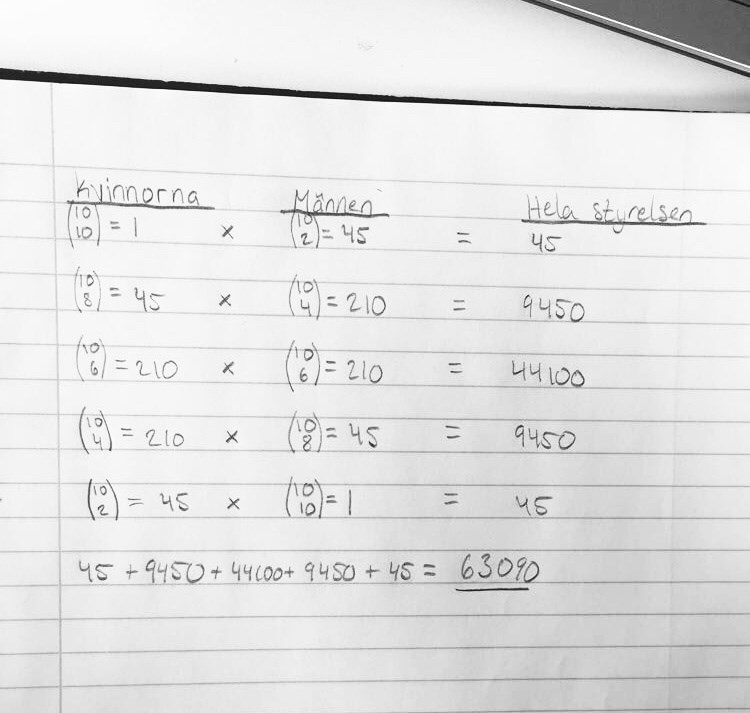 Kvinnorna Männen Hela styrelsen
(10 10) = 1 × (10 2) = 45 = 45
(10 8) = 45 × (10 4) = 210 = 9450
(10 6) = 210 × (10 6) = 210 = 44100
(10 4) = 210 × (10 8) = 45 = 9450
(10 2) = 45 × (10 10) = 1 = 45
45 + 9450 + 44100 + 9450 + 45 = 63090